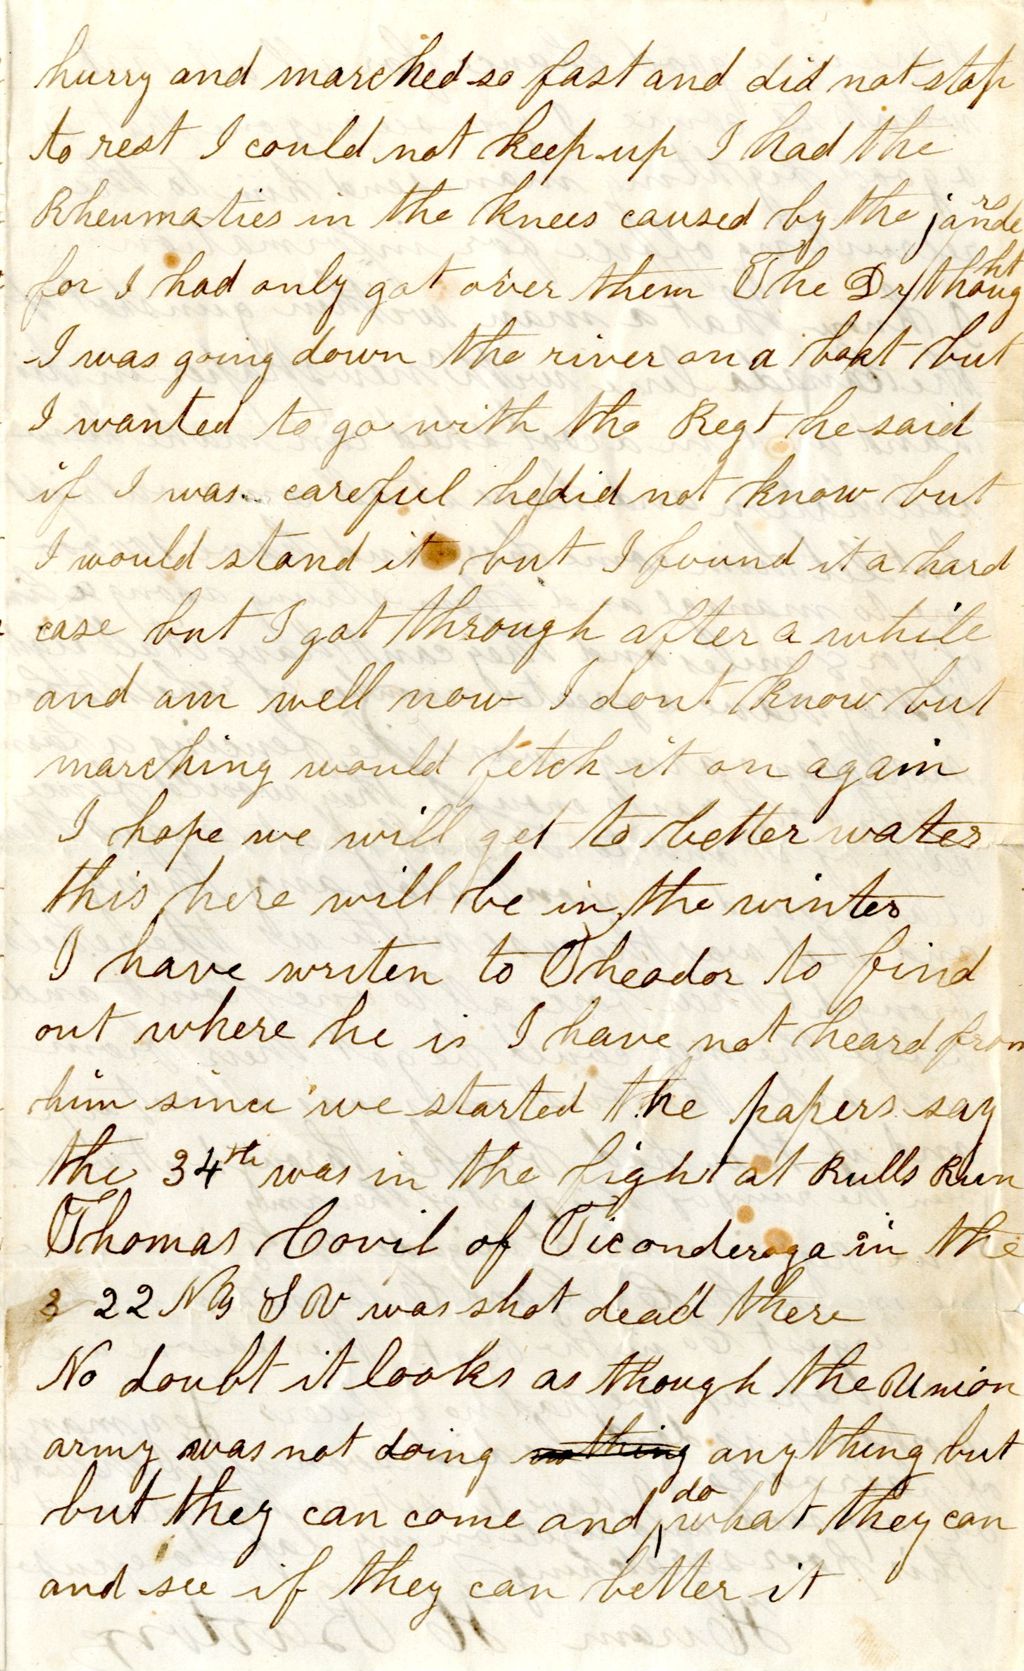 hurry and marched so fast and did not stop
to rest I could not keep up I had the
Rheumaties in the knees caused by the janders
for I had only got over them The Dr thought
I was going down the river on a boat but
I wanted to go with the Regt he said
if I was careful he did not know but
I would stand it but I found it a hard
case but I got through after a while
and am well now I dont know but
marching would fetch it on again
I hope we will get to better water
this here will be in the winter
I have writen to Theodor to find
out where he is I have not heard from
him since we started the papers say
the 34th was in the fight at Bulls Run
Thomas Covil of Ticonderoga in the
22 NY S V was shot dead there
No doubt it looks as though the Union
army was not doing nothing anything but
but they can come and do what they can
and see if they can better it